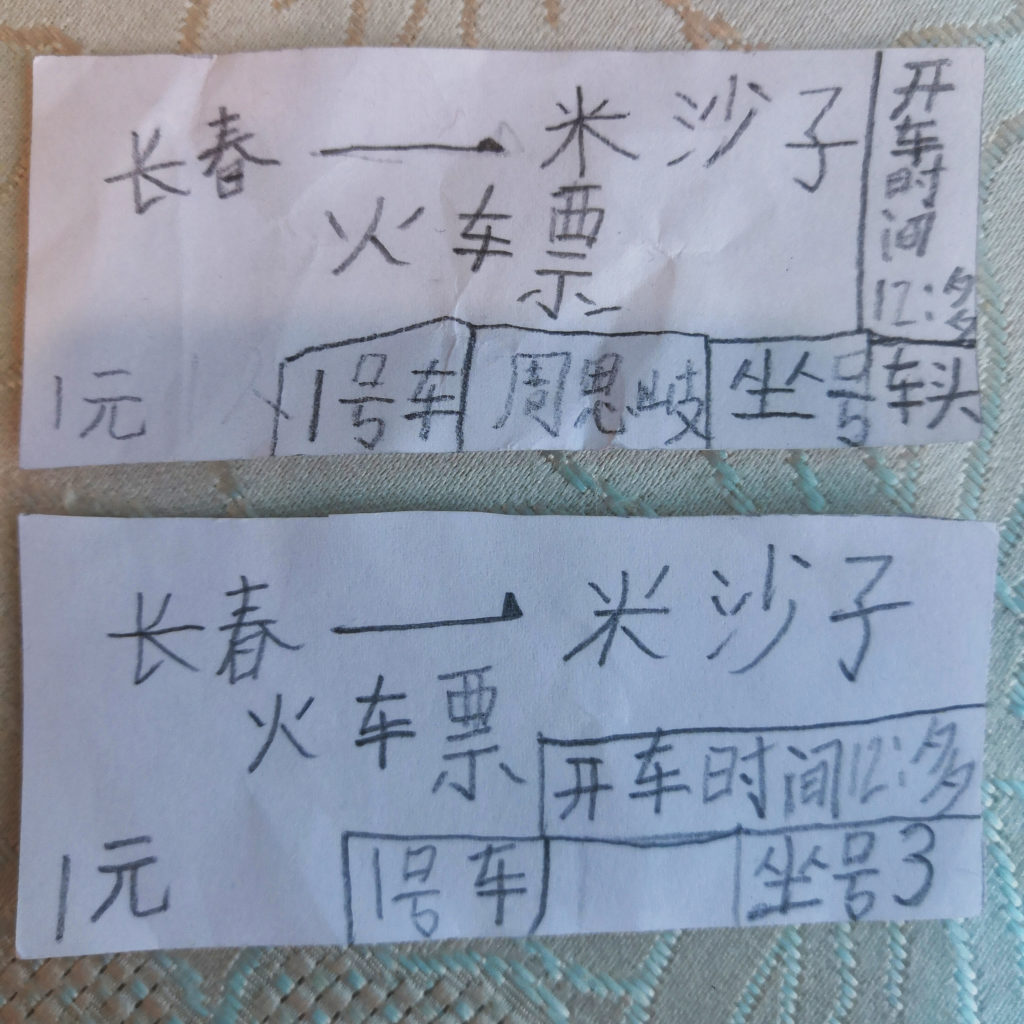 长春 → 米沙子
火车票
开车时间
12:多
1元
1号车
周思岐
坐号
车头
长春 → 米沙子
火车票
开车时间12:多
1元
1号车
坐号3